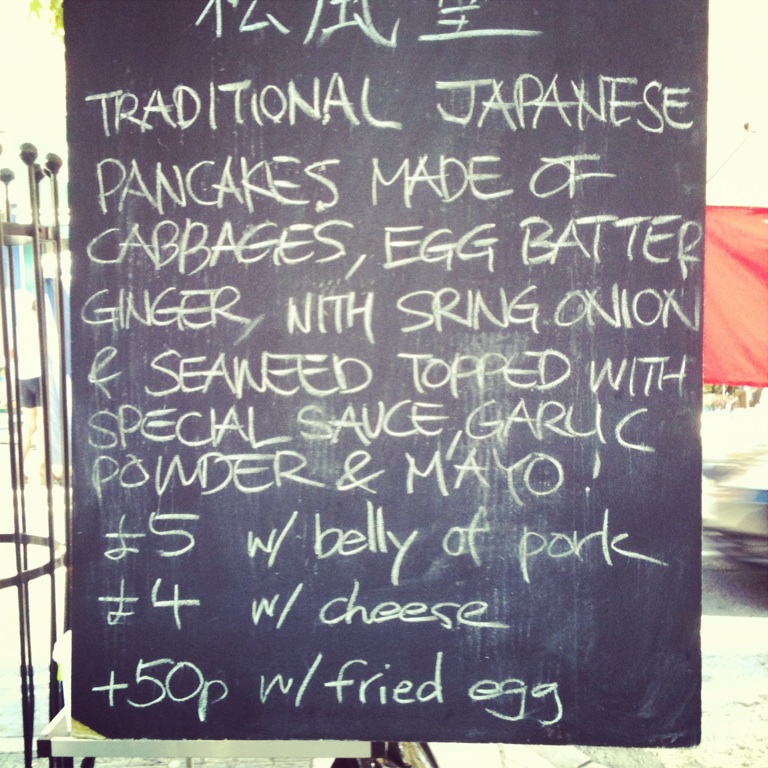 松風堂
TRADITIONAL JAPANESE
PANCAKES MADE OF
CABBAGES, EGG BATTER
GINGER, WITH SRING ONION
& SEAWEED TOPPED WITH
SPECIAL SAUCE, GARLIC
POWDER & MAYO!
£5 w/ belly of pork
£4 w/ cheese
+50p w/ fried egg